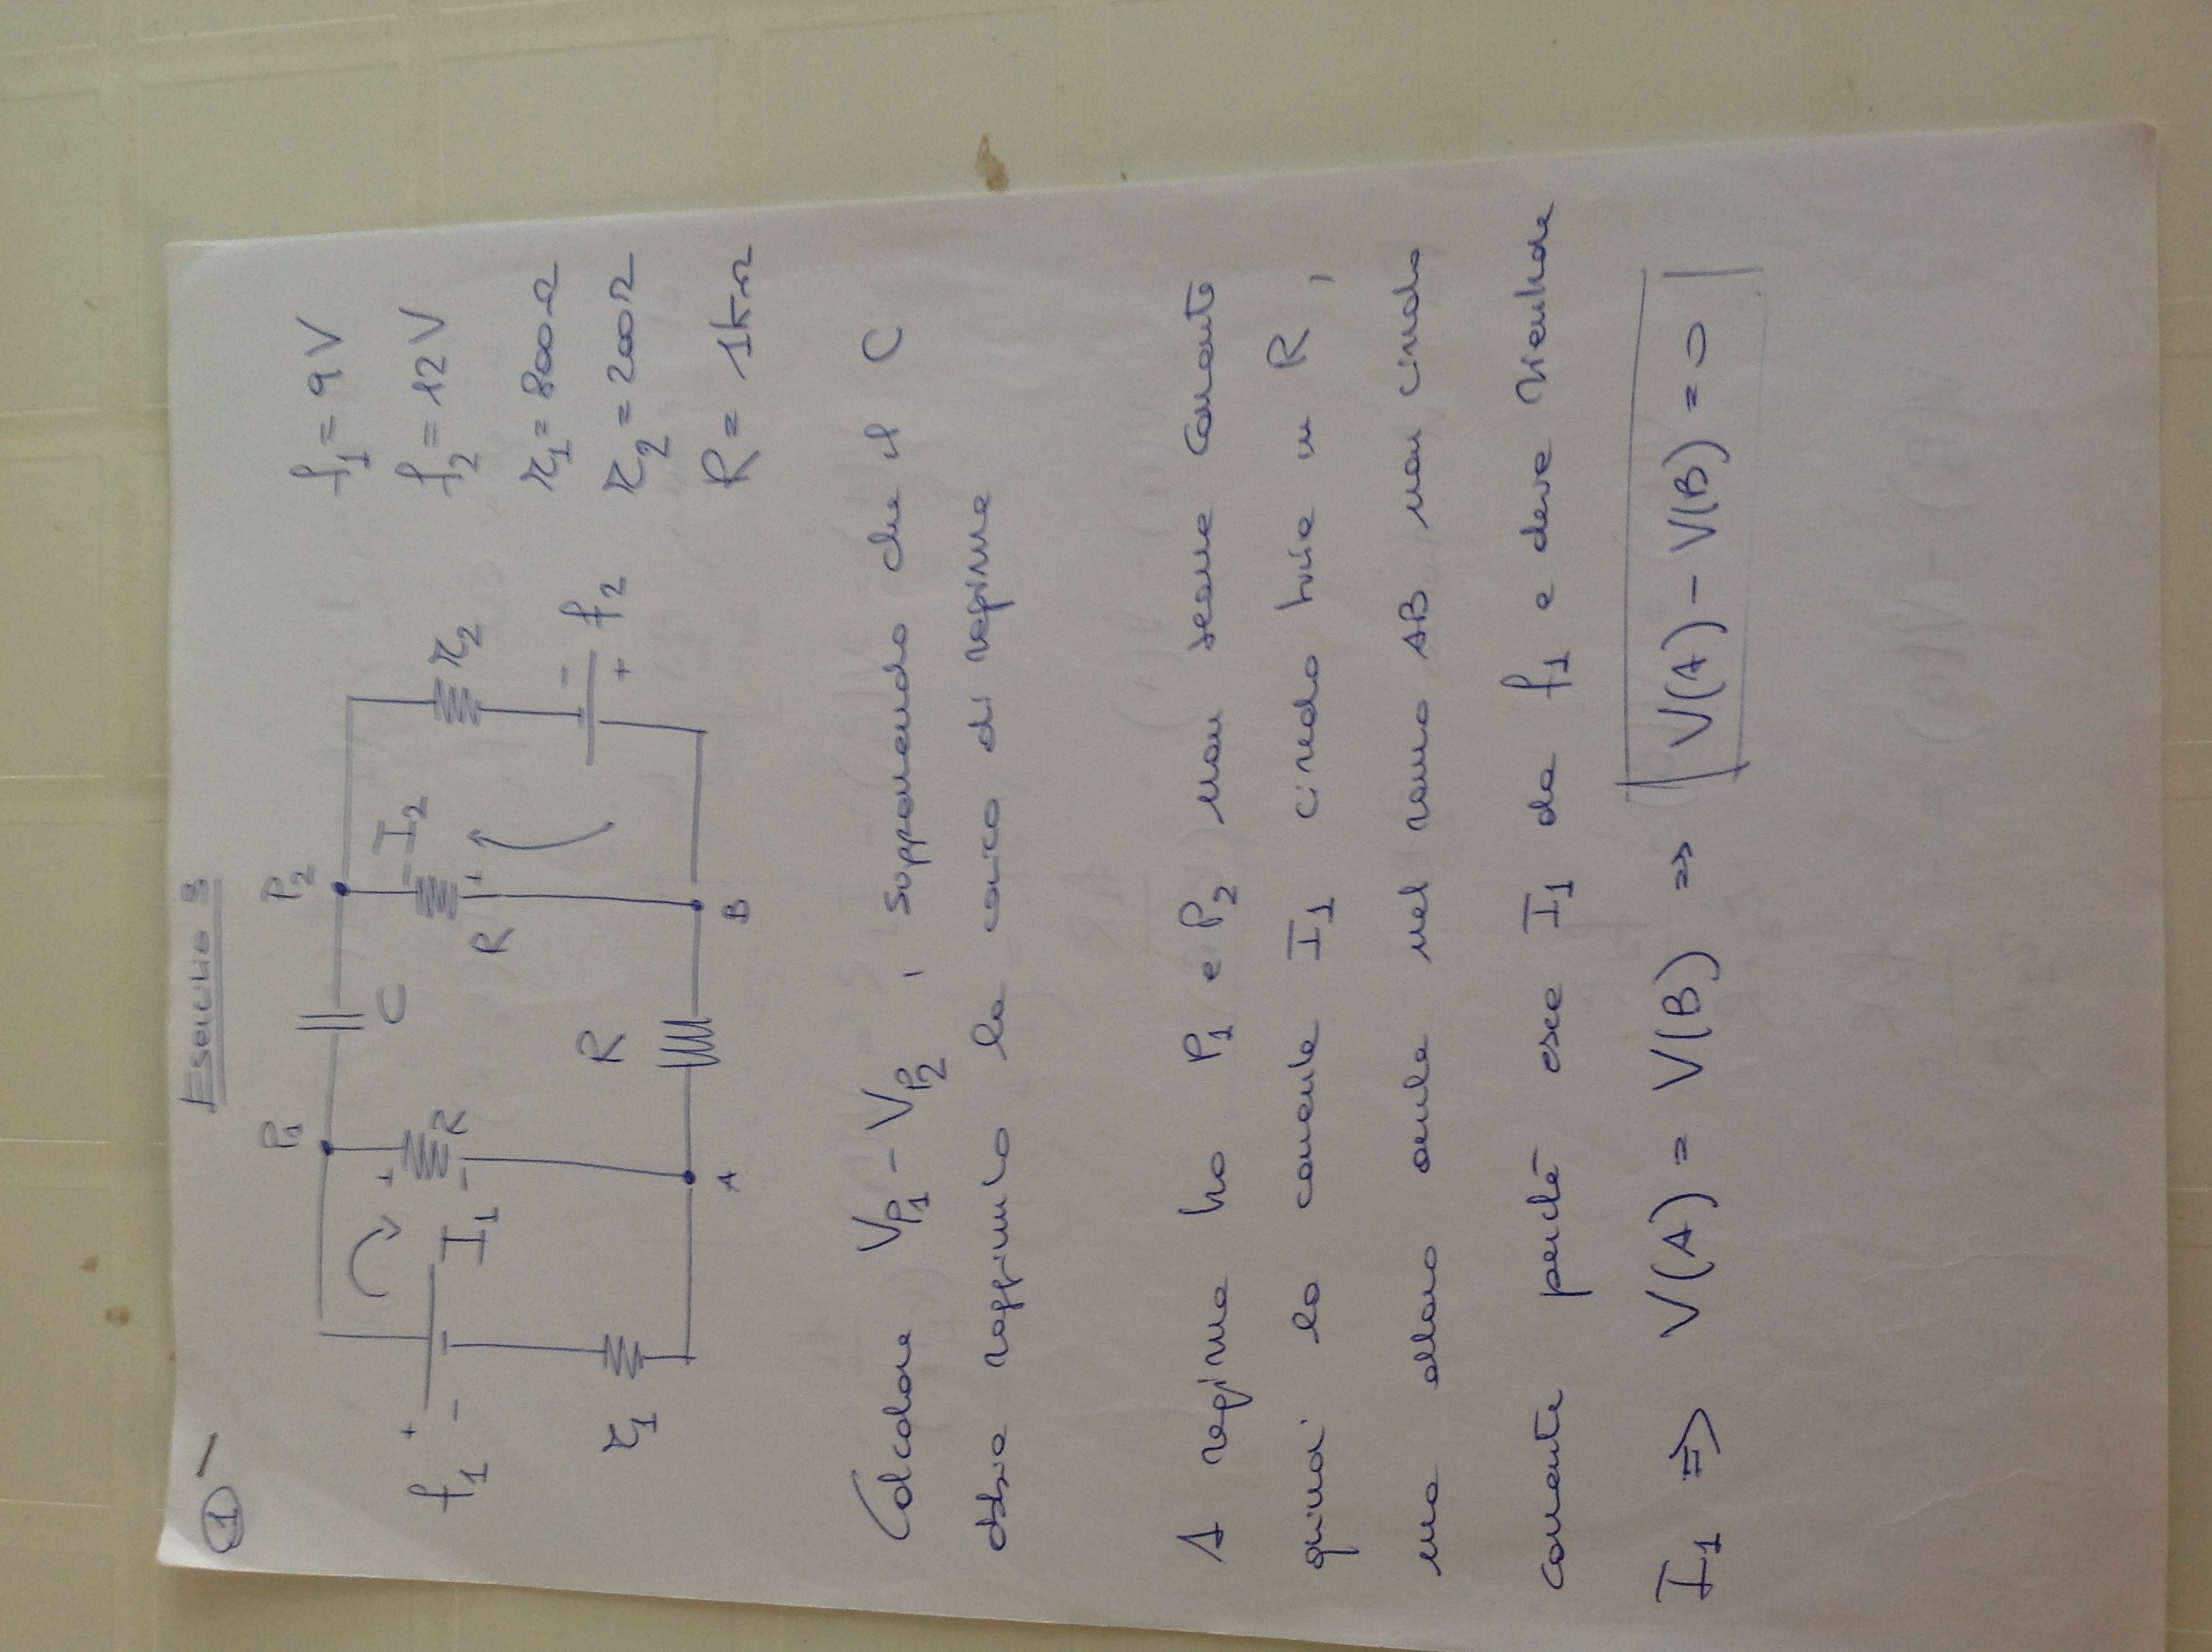 1
Esercizio 3
P1
P2
C
f1
+
-
I1
+
-
R
I2
-
R
+
r2
-
f2
+
r1
R
A
B
f1 = 9V
f2 = 12V
r1 = 800Ω
r2 = 200Ω
R = 1kΩ
Calcolare VP1 - VP2 , supponendo che il C
abbia raggiunto la carica di regime
A regime tra P1 e P2 non scorre corrente
quindi la corrente I1 circola tutta in R,
ma allora anche nel ramo AB non circola
corrente perché esce I1 da f1 e deve rientrare
I1 ⇒ V(A) = V(B) ⇒ V(A) - V(B) = 0